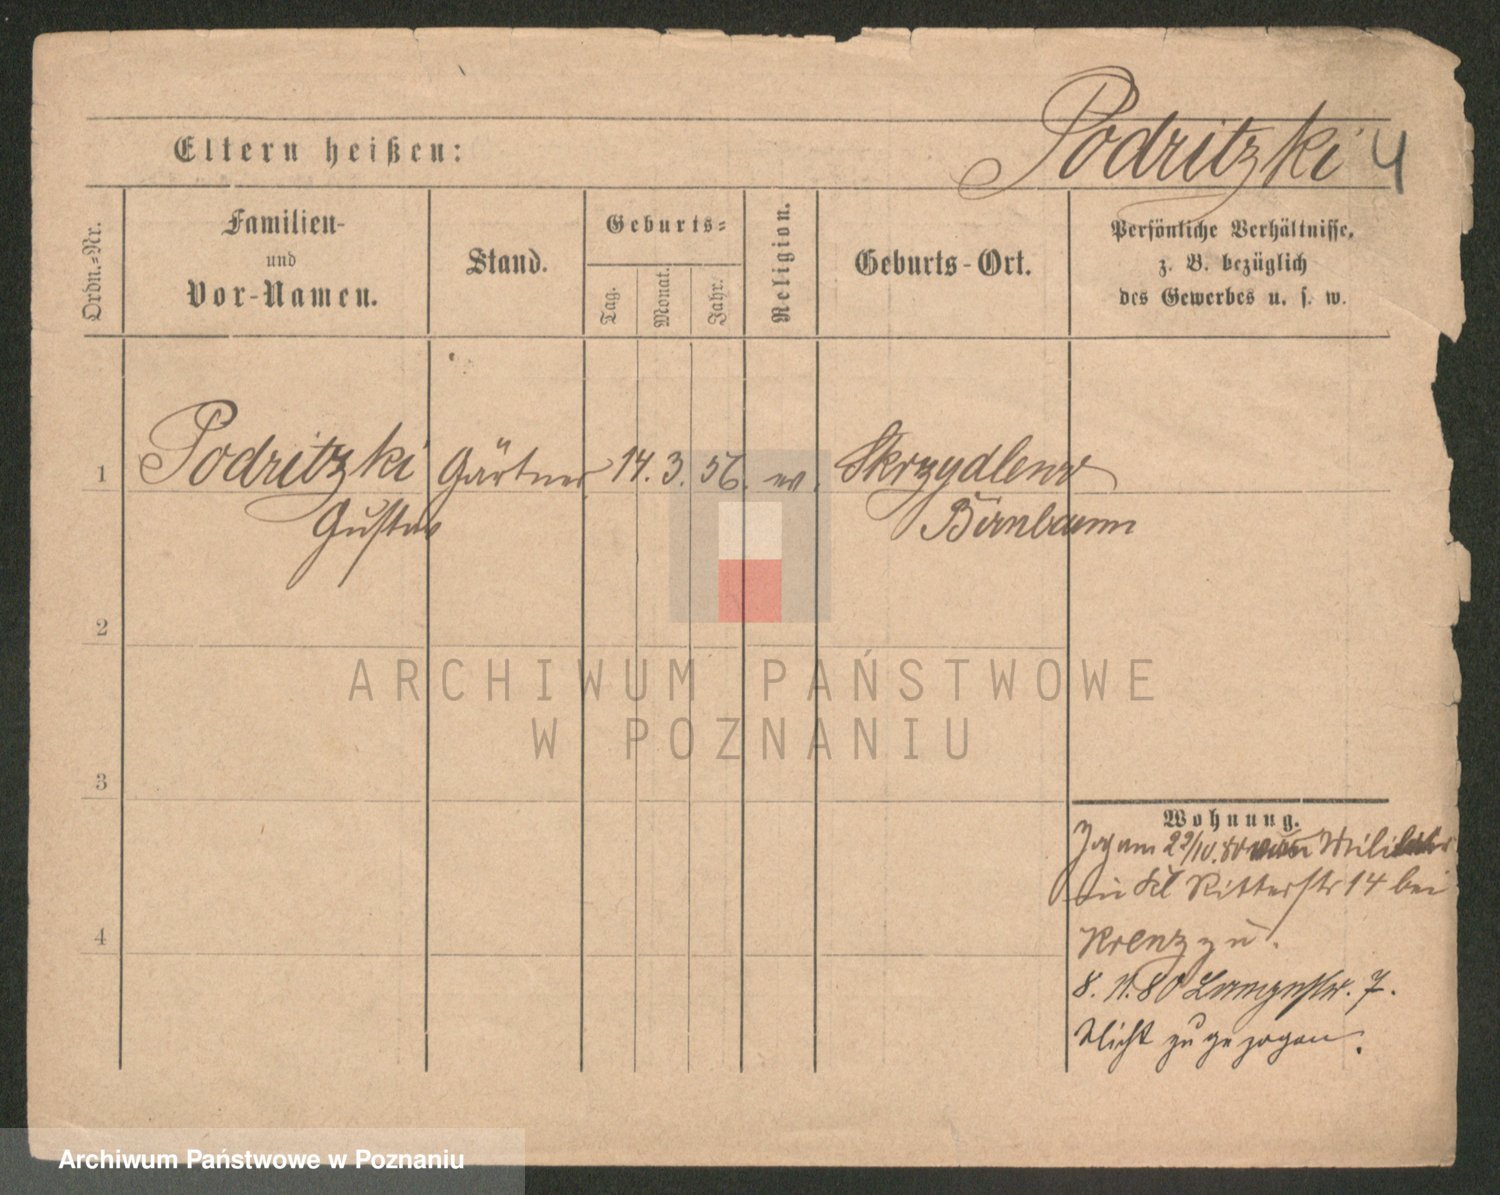 Podritzki 4
Eltern heißen:
Ordn.-Nr.
Familien-
und
Vor-Namen.
Stand.
Geburts-
Tag.
Monat.
Jahr.
Religion.
Geburts-Ort.
Persönliche Verhältnisse,
z. B. bezüglich
des Gewerbes u. s. w.
1 Podritzki Gärtner 14. 3. 56. ev. Skrzydlewo
Gustav Birnbaum
2
3
4
Wohnung.
Zog am 22/10.80 vom Militär
in Kl Ritterstr 14 bei
Krenz zu.
8. 11. 80 Langestr. 7.
Nicht zugezogen.
ARCHIWUM PAŃSTWOWE
W POZNANIU
Archiwum Państwowe w Poznaniu